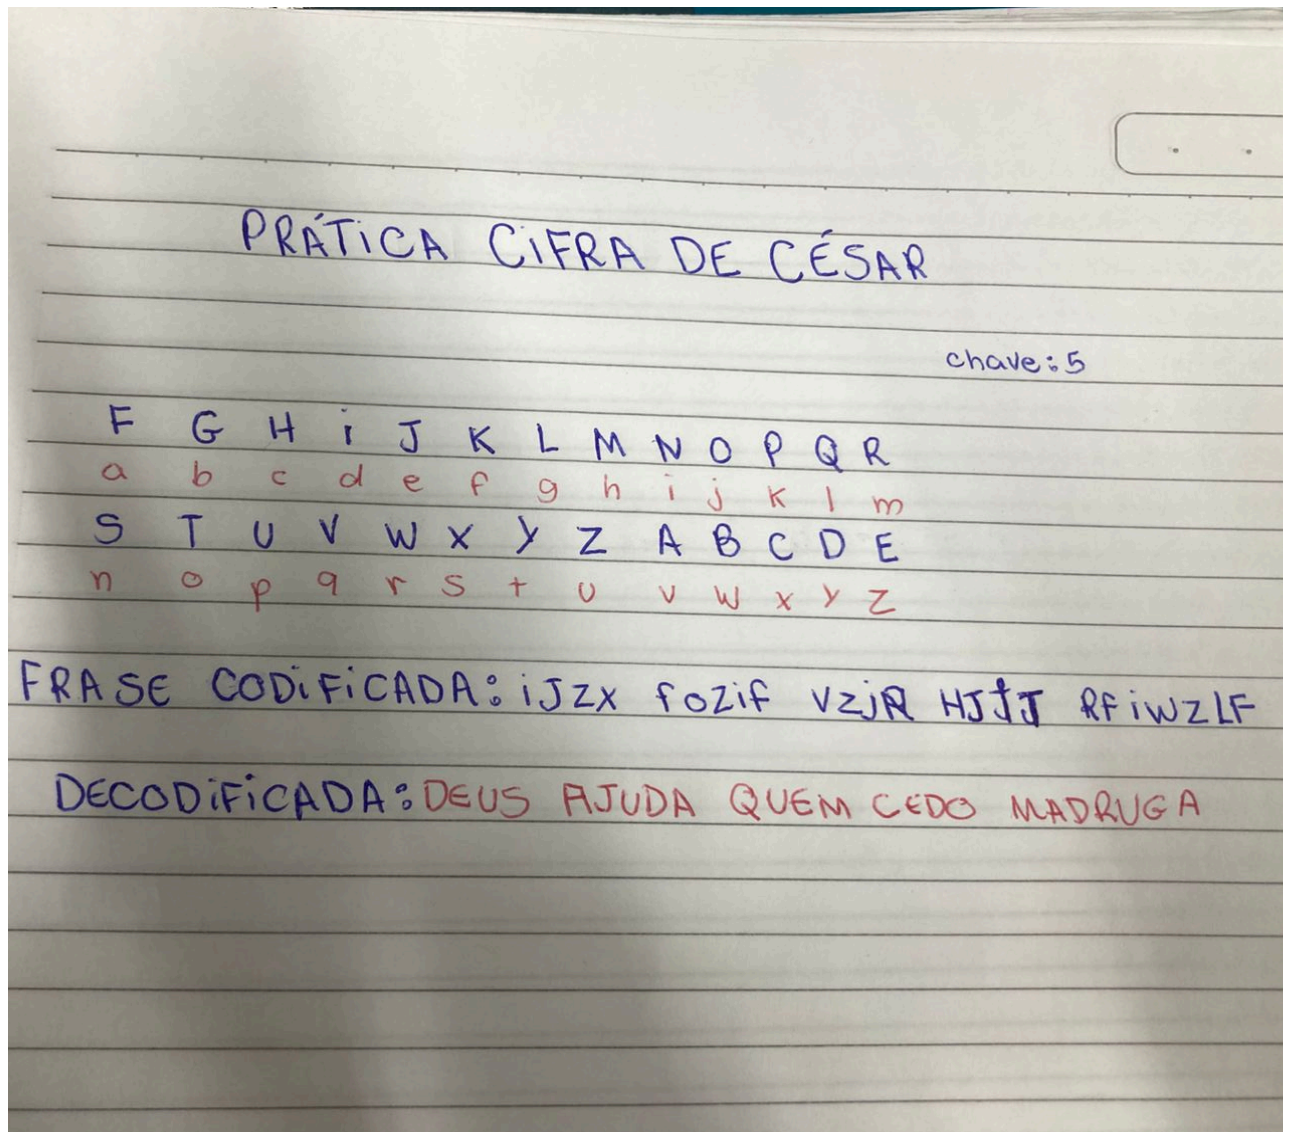 PRÁTiCA CiFRA DE CÉSAR
chave: 5
F G H i J K L M N O P Q R
a b c d e f g h i j k l m
S T U V W X Y Z A B C D E
n o p q r s t u v w x y z
FRASE CODiFiCADA: iJZX fOZif VZJR RfiWZLF
DECODiFiCADA: DEUS AJUDA QUEM CEDO MADRUGA